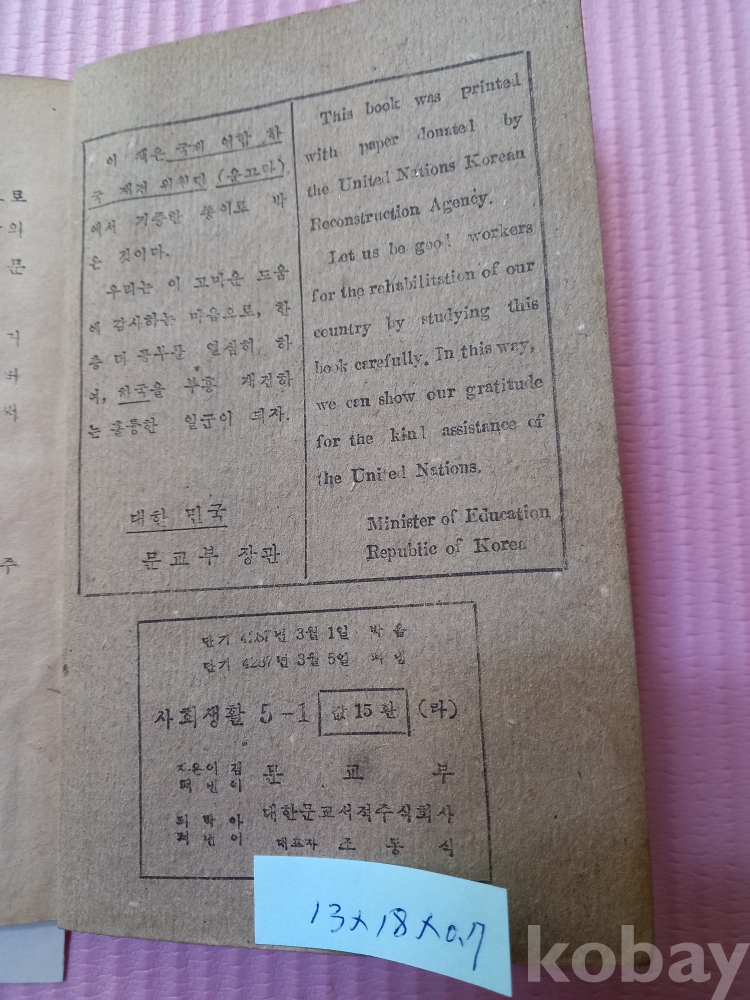 이 책은 국제 연합 한
국 재건 위원단 (운끄라)
에서 기증한 종이로 박
은 것이다.
우리는 이 고마운 도움
에 감사하는 마음으로, 한
층 더 공부를 열심히 하
여, 한국을 부흥 재건하
는 훌륭한 일군이 되자.
대한 민국
문교부 장관
This book was printed
with paper donated by
the United Nations Korean
Reconstruction Agency.
Let us be good workers
for the rehabilitation of our
country by studying this
book carefully. In this way,
we can show our gratitude
for the kind assistance of
the United Nations.
Minister of Education
Republic of Korea
단기 4287년 3월 1일 박음
단기 4287년 3월 5일 펴냄
사회생활 5-1 값 15환 (라)
지은이 겸 펴낸이 문 교 부
되박아 펴낸이 대한문교서적주식회사
대표자 조 동 식
13×18×0.7
kobay
로
의
문
주